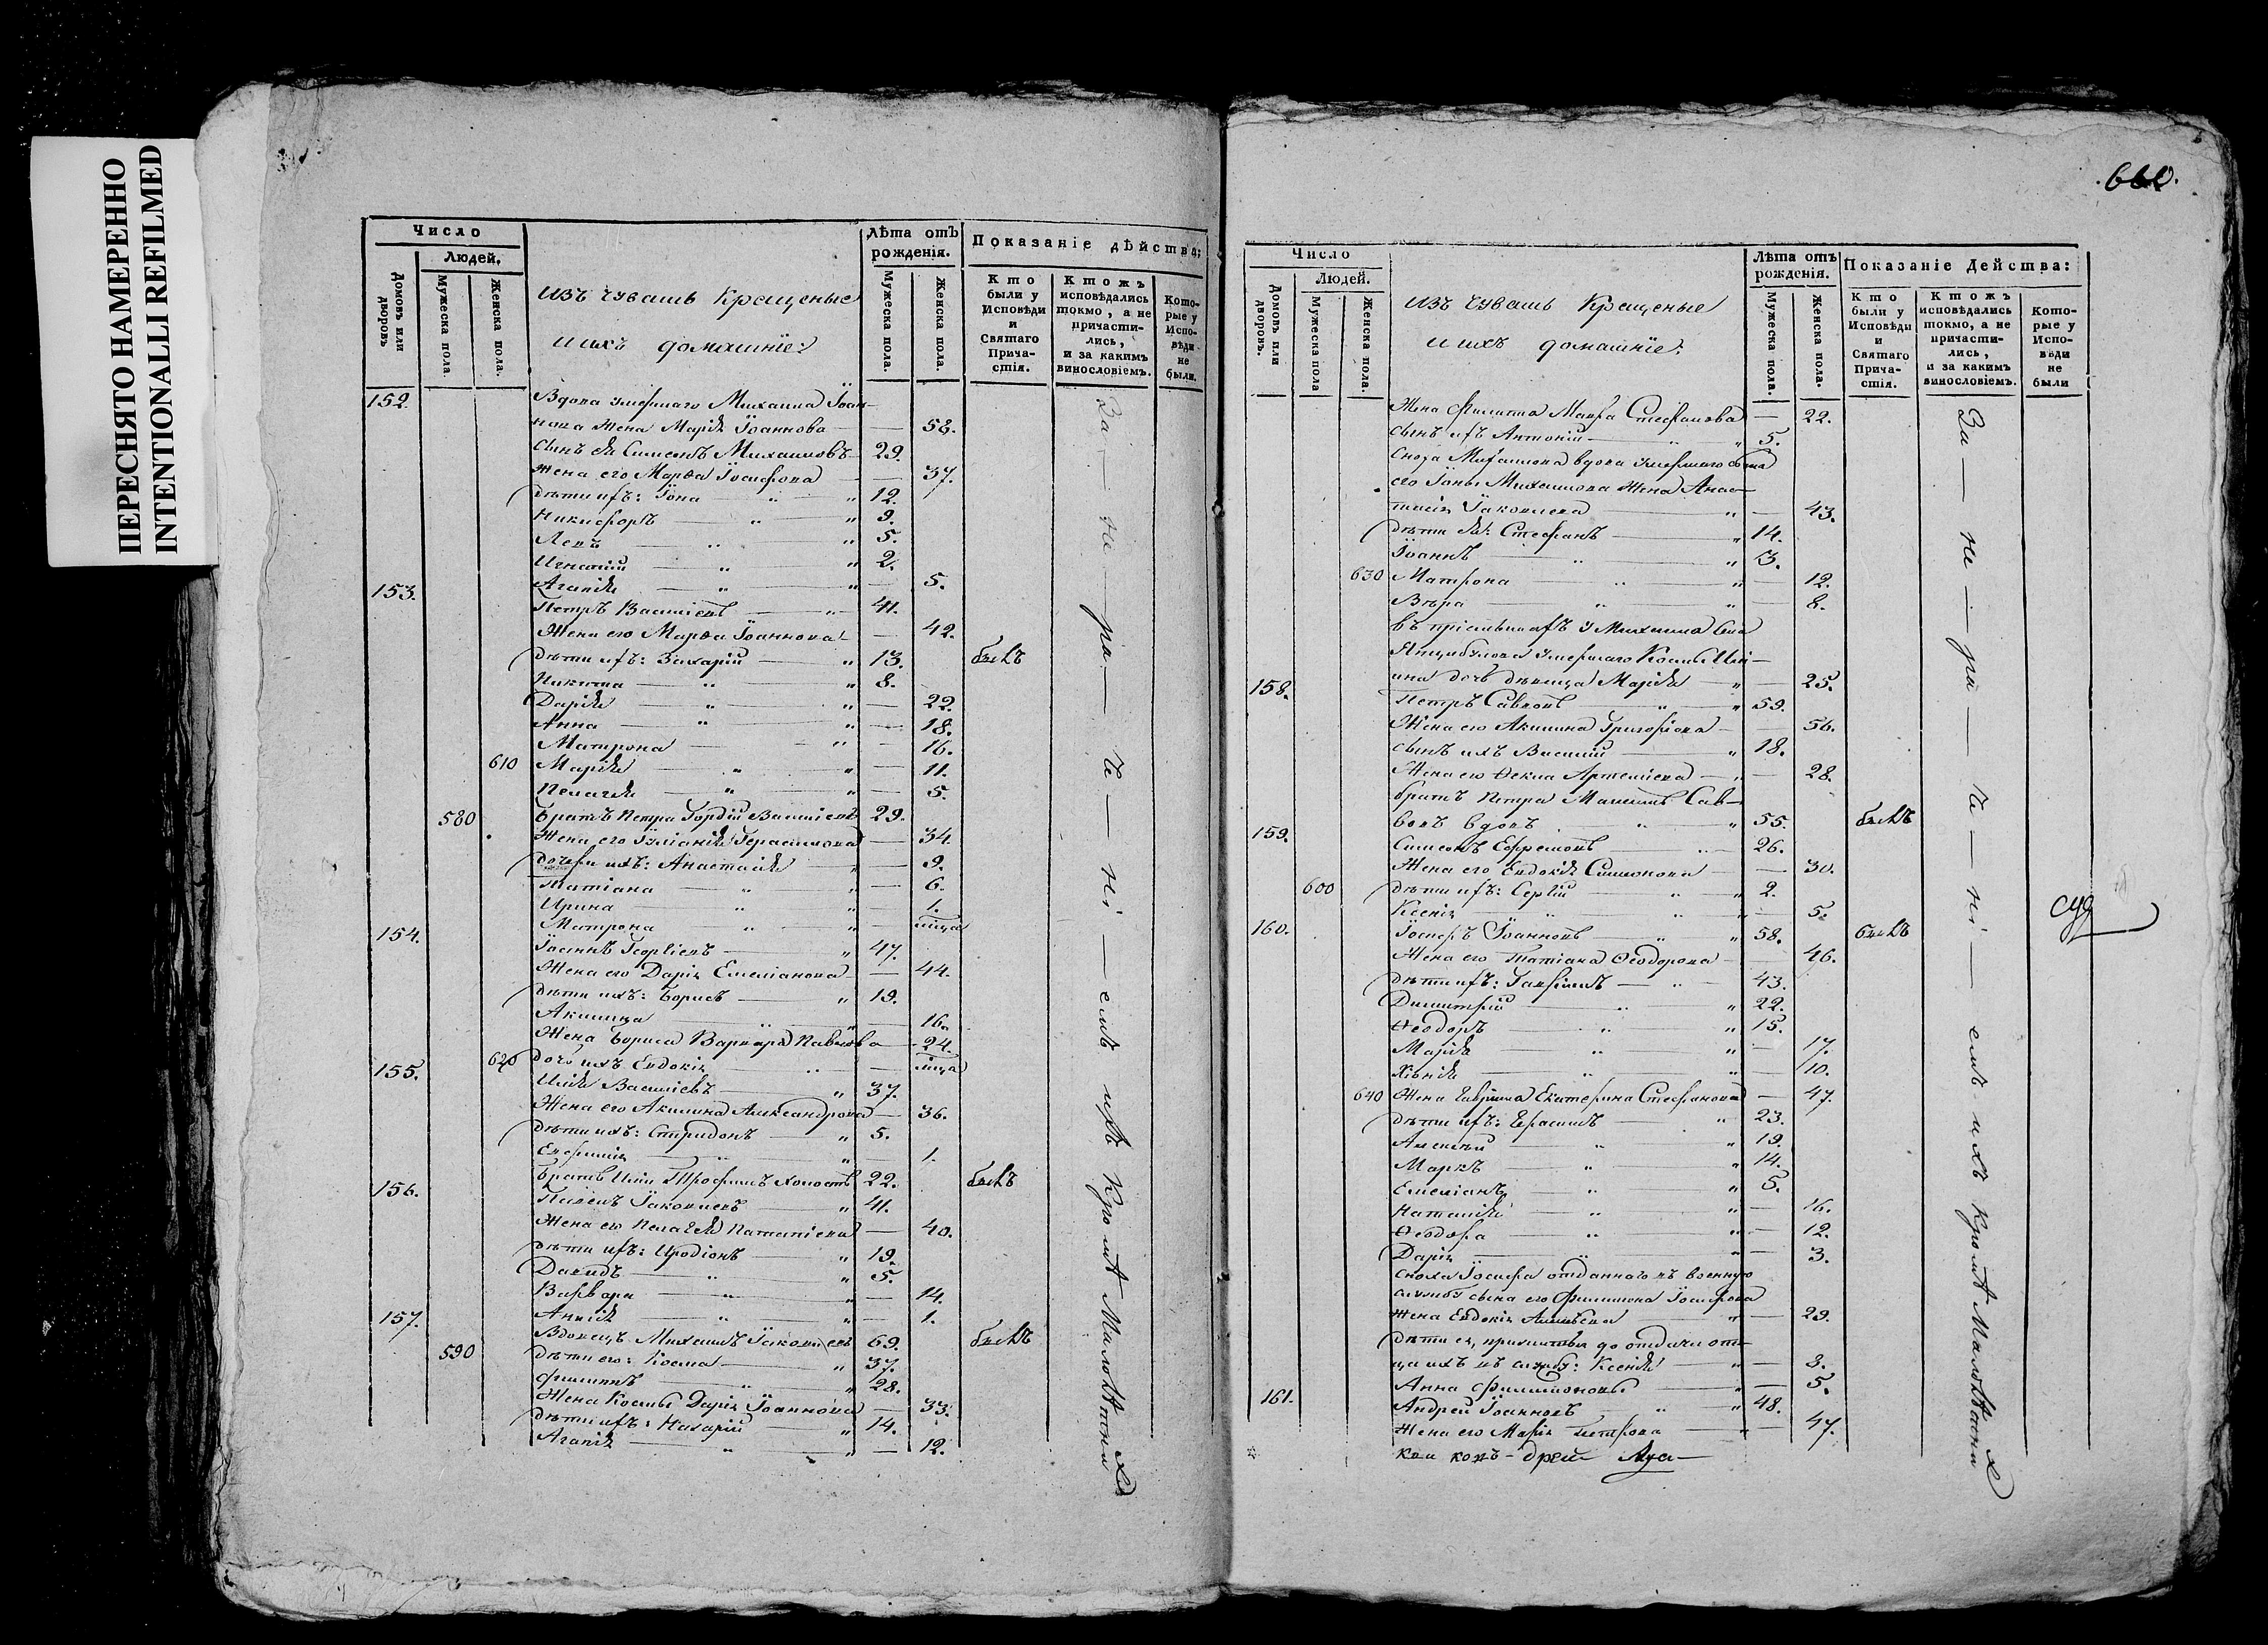 ПЕРЕСНЯТО НАМЕРЕННО
INTENTIONALLI REFILMED
Число
Людей.
Домовъ или дворовъ
Мужеска пола.
Женска пола.
изъ чувашъ Крещеные
и ихъ домашніе:
Лѣта отъ рожденія.
Мужеска пола.
Женска пола.
Показаніе дѣйства:
Кто были у Исповѣди и Святаго Причастія.
Ктожъ исповѣдались токмо, а не причастились, и за какимъ винословіемъ.
Которые у Исповѣди не были.
152. Вдова умершаго Михаила Іоан-
нова жена Марія Іоаннова — 58.
сынъ ея Симеонъ Михаиловъ 29.
жена его Марѳа Іосифова — 37.
дѣти ихъ: Іона 12.
Никифоръ 9.
Левъ 5.
Игнатій 2.
Агапія — 5.
153. Петръ Василіевъ 41.
Жена его Марѳа Іоаннова — 42.
дѣти ихъ: Захарій 13. былъ
Никита 8.
Дарія — 22.
Анна — 18.
Матрона — 16.
610 Марія — 11.
Пелагія — 5.
580 Братъ Петра Гордій Василіевъ 29.
Жена его Іуліанія Герасимова — 34.
дочери ихъ: Анастасія — 9.
Татіана — 6.
Ирина — 1.
Матрона —
154. Іоаннъ Георгіевъ 47.
Жена его Дарія Емеліанова — 44.
дѣти ихъ: Борисъ 19.
Акилина — 16.
Жена Бориса Варвара Павлова — 24.
620 дочь ихъ Евдокія —
155. Илія Василіевъ 37.
Жена его Акилина Александрова — 36.
дѣти ихъ: Спиридонъ 5.
Евфимія — 1.
Братъ Иліи Трофимъ холостъ 22. былъ
156. Павелъ Іаковлевъ 41.
Жена его Пелагея — 40.
дѣти ихъ: Иродіонъ 19.
Давидъ 5.
Варвара — 14.
Аннія — 1.
157. Вдовецъ Михаилъ Іаковлевъ 69. былъ
590 дѣти его: Косма 37.
Филиппъ 28.
Жена Космы Дарія Іоаннова — 33.
дѣти ихъ: Назарій 14.
Агапія — 12.
За — не — ра — че — ні — емъ ихъ кромѣ малолѣтнихъ
660.
Число
Людей.
Домовъ или дворовъ.
Мужеска пола
Женска пола.
изъ чувашъ Крещеные
и ихъ домашніе:
Лѣта отъ рожденія.
Мужеска пола.
Женска пола.
Показаніе Действа:
Кто были у Исповѣди и Святаго Причастія.
Ктожъ исповѣдались токмо, а не причастились, и за какимъ винословіемъ.
Которые у Исповѣди не были
Жена Филиппа Мавра Стефанова — 22.
сынъ ихъ Антоній 5.
Сноха Михаилова вдова умершаго сына
его Іоны Михаилова жена Анас-
тасія Іаковлева — 43.
дѣти ея: Стефанъ 14.
Іоаннъ 3.
630 Матрона — 12.
Вѣра — 8.
въ пріемышахъ у Михаила
умершаго Космы
дочь дѣвица Марія — 25.
158. Петръ Савловъ 59.
Жена его Акилина Григорьева — 56.
сынъ ихъ Василій 18.
Жена его Ѳекла Артеміева — 28.
братъ Петра Сав-
вовъ вдовъ 55. былъ
159. Симеонъ Ефремовъ 26.
Жена его Евдокія Симонова — 30.
600 дѣти ихъ: Сергій 2.
Ксенія — 5.
160. Іосифъ Іоанновъ 58. былъ
Жена его Татіана Ѳеодорова — 46.
дѣти ихъ: Гавріилъ 43.
Димитрій 22.
Ѳеодоръ 15.
Марія — 17.
Хіонія — 10.
640 Жена Гавріила Екатерина Стефанова — 47.
дѣти ихъ: Герасимъ 23.
Алексѣй 19.
Маркъ 14.
Емеліанъ 5.
Наталія — 16.
Ѳеодора — 12.
Дарія — 3.
сноха Іосифа отданнаго въ военную
службу сына его Филимона Іосифова
жена Евдокія — 29.
дѣти ея, прижитыя до отдачи от-
ца ихъ въ службу: Ксенія — 8.
Анна Филимоновы — 5.
161. Андрей Іоанновъ 48.
Жена его Марія Петрова — 47.
За — не — ра — че — ні — емъ ихъ кромѣ малолѣтнихъ